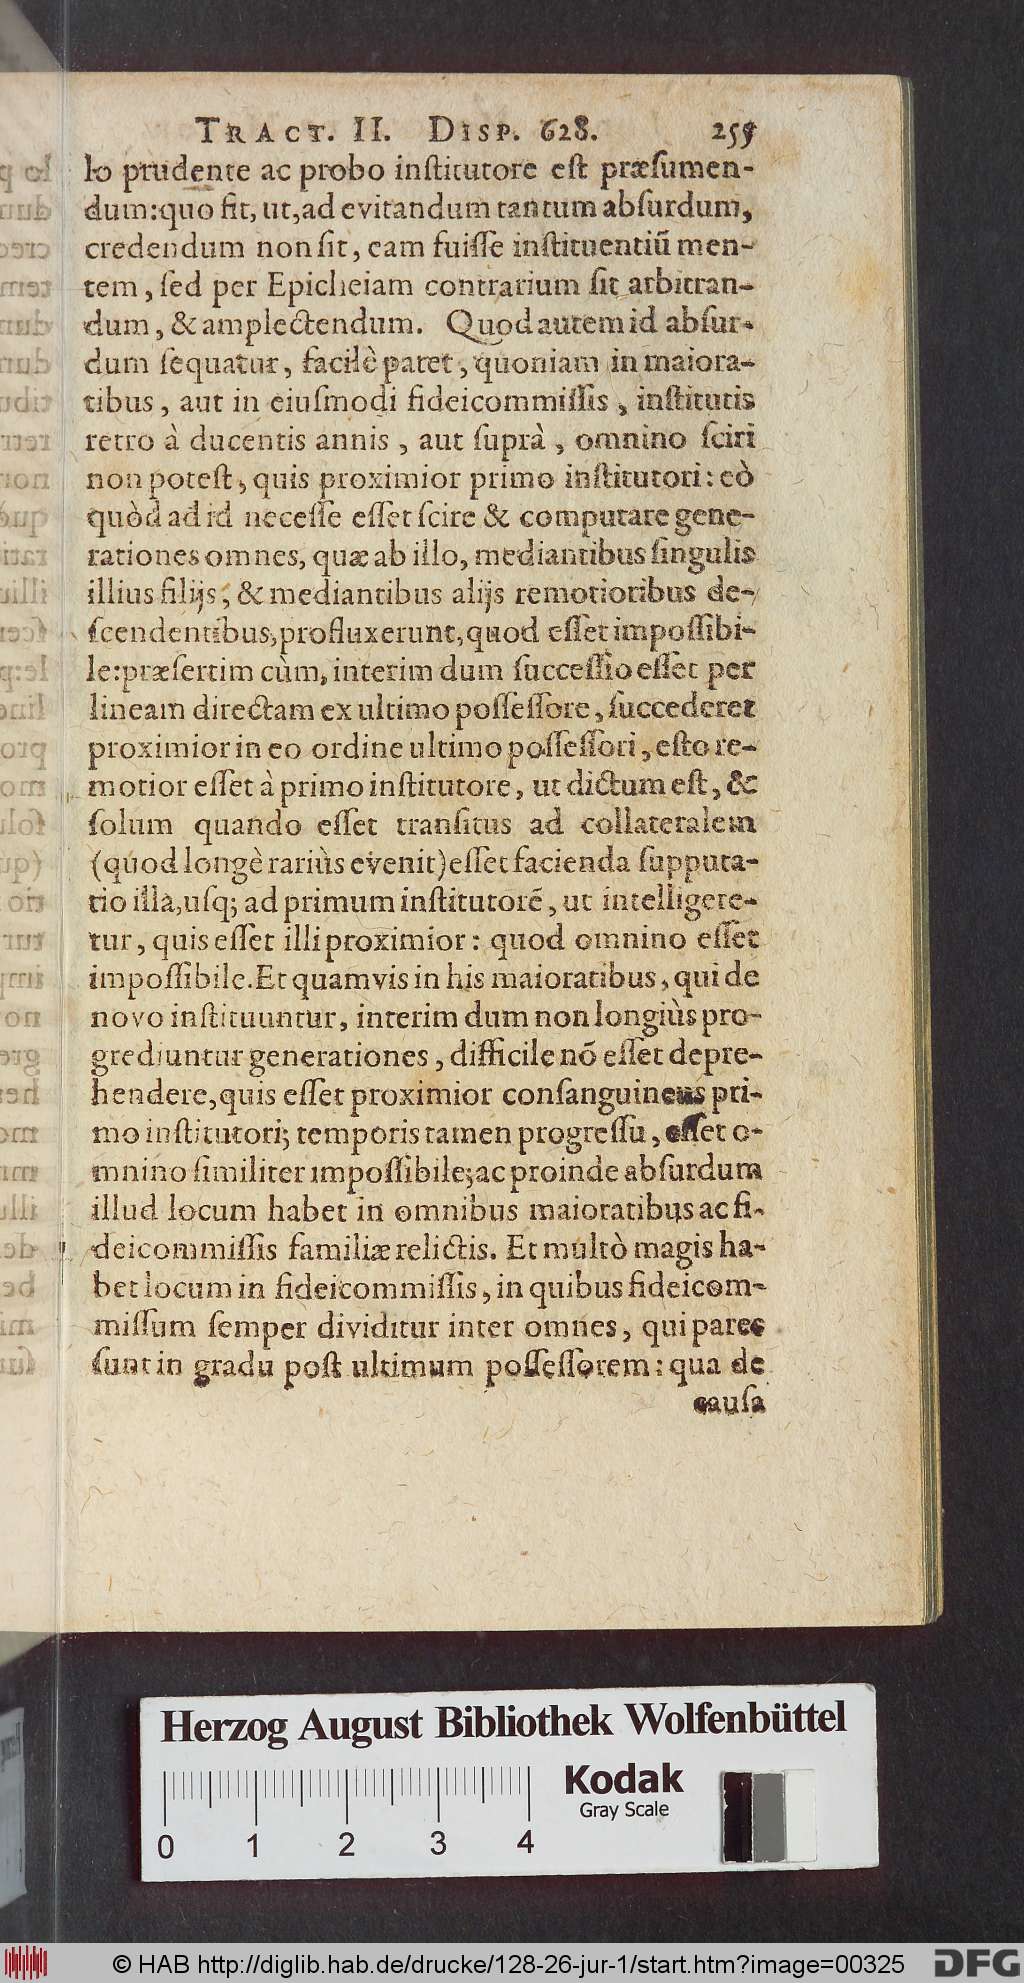 TRACT. II. DISP. 628. 259
lo prudente ac probo inſtitutore eſt præſumen-
dum: quo fit, ut, ad evitandum tantum abſurdum,
credendum non ſit, eam fuiſſe inſtituentiũ men-
tem, ſed per Epicheiam contrarium ſit arbitran-
dum, & amplectendum. Quod autem id abſur-
dum ſequatur, facilè patet, quoniam in maiora-
tibus, aut in eiuſmodi fideicommiſſis, inſtitutis
retro à ducentis annis, aut ſuprà, omnino ſciri
non poteſt, quis proximior primo inſtitutori: eò
quòd ad id neceſſe eſſet ſcire & computare gene-
rationes omnes, quæ ab illo, mediantibus ſingulis
illius filijs, & mediantibus alijs remotioribus de-
ſcendentibus, profluxerunt, quod eſſet impoſſibi-
le: præſertim cùm, interim dum ſucceſſio eſſet per
lineam directam ex ultimo poſſeſſore, ſuccederet
proximior in eo ordine ultimo poſſeſſori, eſto re-
motior eſſet à primo inſtitutore, ut dictum eſt, &
ſolum quando eſſet tranſitus ad collateralem
(quod longè rariùs evenit) eſſet facienda ſupputa-
tio illa, uſq; ad primum inſtitutorẽ, ut intelligere-
tur, quis eſſet illi proximior: quod omnino eſſet
impoſſibile. Et quamvis in his maioratibus, qui de
novo inſtituuntur, interim dum non longiùs pro-
grediuntur generationes, difficile nõ eſſet depre-
hendere, quis eſſet proximior conſanguineus pri-
mo inſtitutori; temporis tamen progreſſu, eſſet o-
mnino ſimiliter impoſſibile; ac proinde abſurdum
illud locum habet in omnibus maioratibus ac fi-
deicommiſſis familiæ relictis. Et multò magis ha-
bet locum in fideicommiſſis, in quibus fideicom-
miſſum ſemper dividitur inter omnes, qui pares
ſunt in gradu poſt ultimum poſſeſſorem: qua de
cauſa
Herzog August Bibliothek Wolfenbüttel
Kodak
Gray Scale
0 1 2 3 4
© HAB http://diglib.hab.de/drucke/128-26-jur-1/start.htm?image=00325
DFG